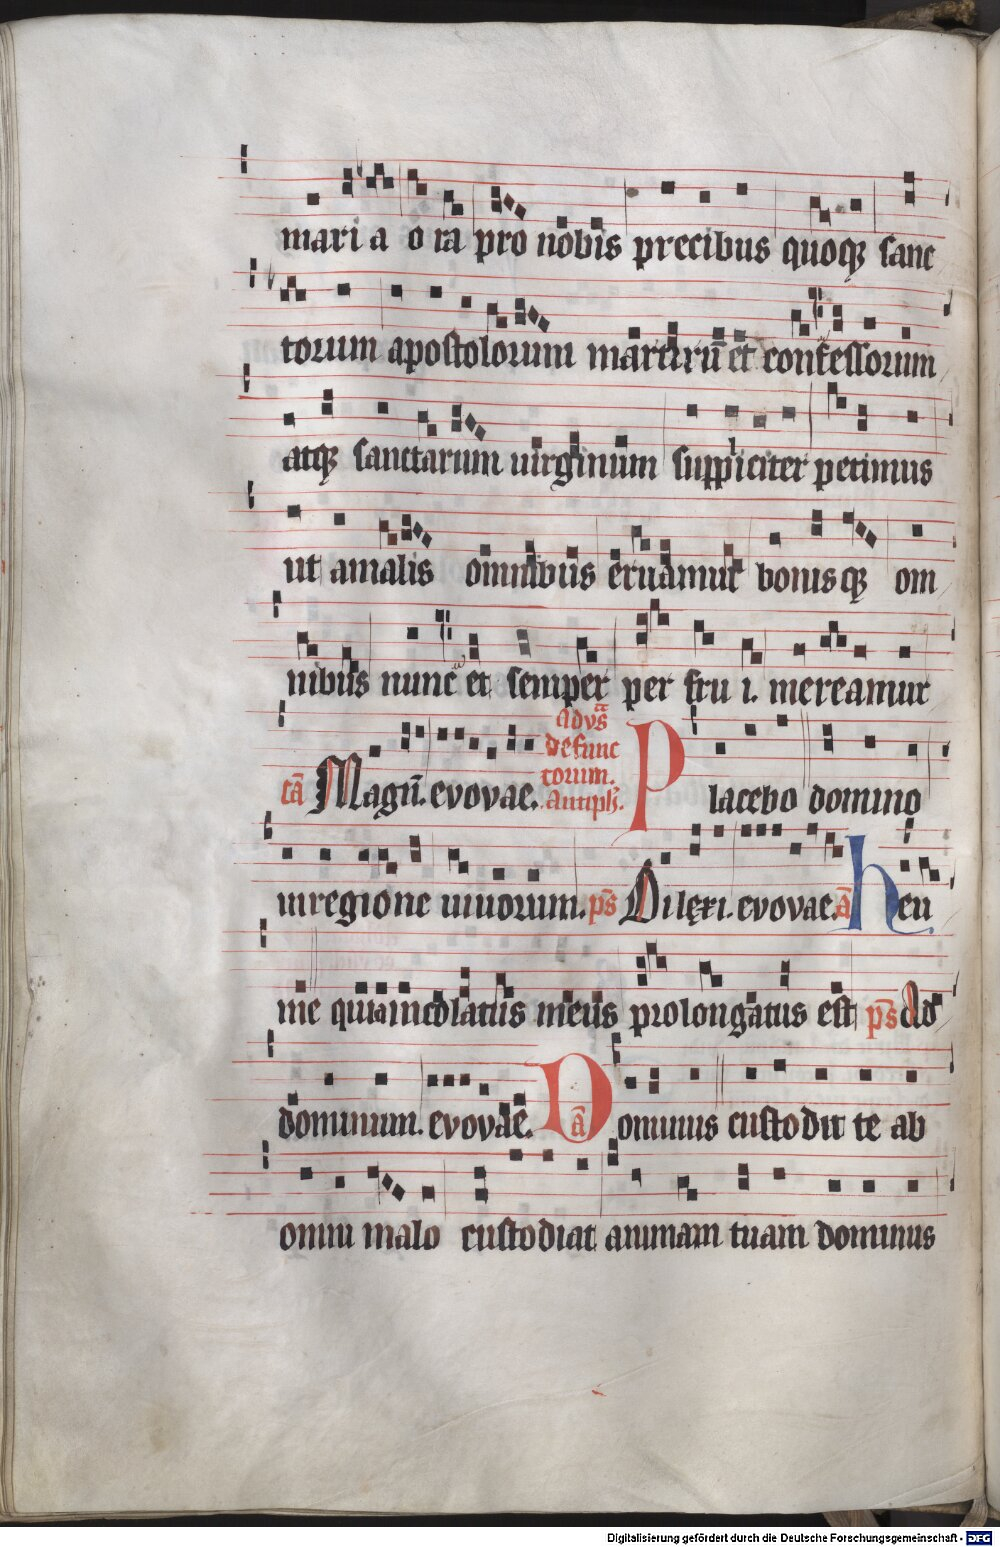 maria ora pro nobis precibus quoqꝫ sanc
torum apostolorum martirū et confessorum
atqꝫ sanctarum uirginum suppliciter petimus
ut a malis omnibus eruamur bonisqꝫ om
nibus nunc et semper per fru i. mereamur
cā Magn̄. evovae. Ad vs̄a defunc torum. Antiph. Placebo domino
in regione uiuorum. ps̄ Dilexi. evovae. ā heu
me quia incolatus meus prolongatus est ps̄ Ad
dominum. evovae. ā Dominus custodit te ab
omni malo custodiat animam tuam dominus
Digitalisierung gefördert durch die Deutsche Forschungsgemeinschaft - DFG